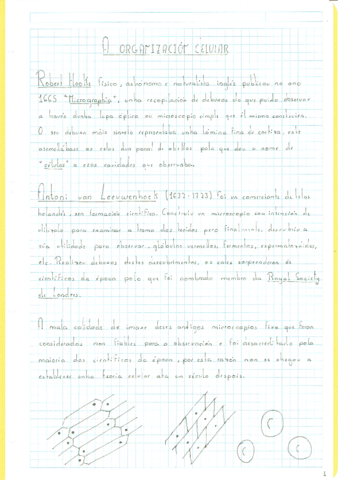 A ORGANIZACIÓN CELULAR
Robert Hooke físico, astrónomo e naturalista inglés publicou no ano
1665 "Micrographia", unha recopilación de debuxos do que podía observar
a través dunha lupa óptica ou microscopio simple que el mesmo construíra.
O seu debuxo máis representaba unha lámina fina de cortiza, cuio
as celas dun panal de abellas polo que deu o nome de
"células" a esas cavidades que observaba.
Antoni van Leeuwenhoek (1632-1723) Foi un comerciante de telas
holandés, sen formación científica. Construíu un microscopio con intención de
utilizalo para examinar a trama dos tecidos pero finalmente, descubriu a
súa utilidade para observar glóbulos vermellos, fermentos, espermatozoides,
etc. Realizou debuxos destes descubrimentos, os cales
científicos da época polo que foi nombrado membro da Royal Society
de Londres.
A mala calidade da imaxe destes antigos microscopios fixo que foran
considerados non fiables para a observación e foi desacreditado pola
maioría dos científicos da época, por esta razón non se chegou a
establecer unha teoría celular ata un século despois.